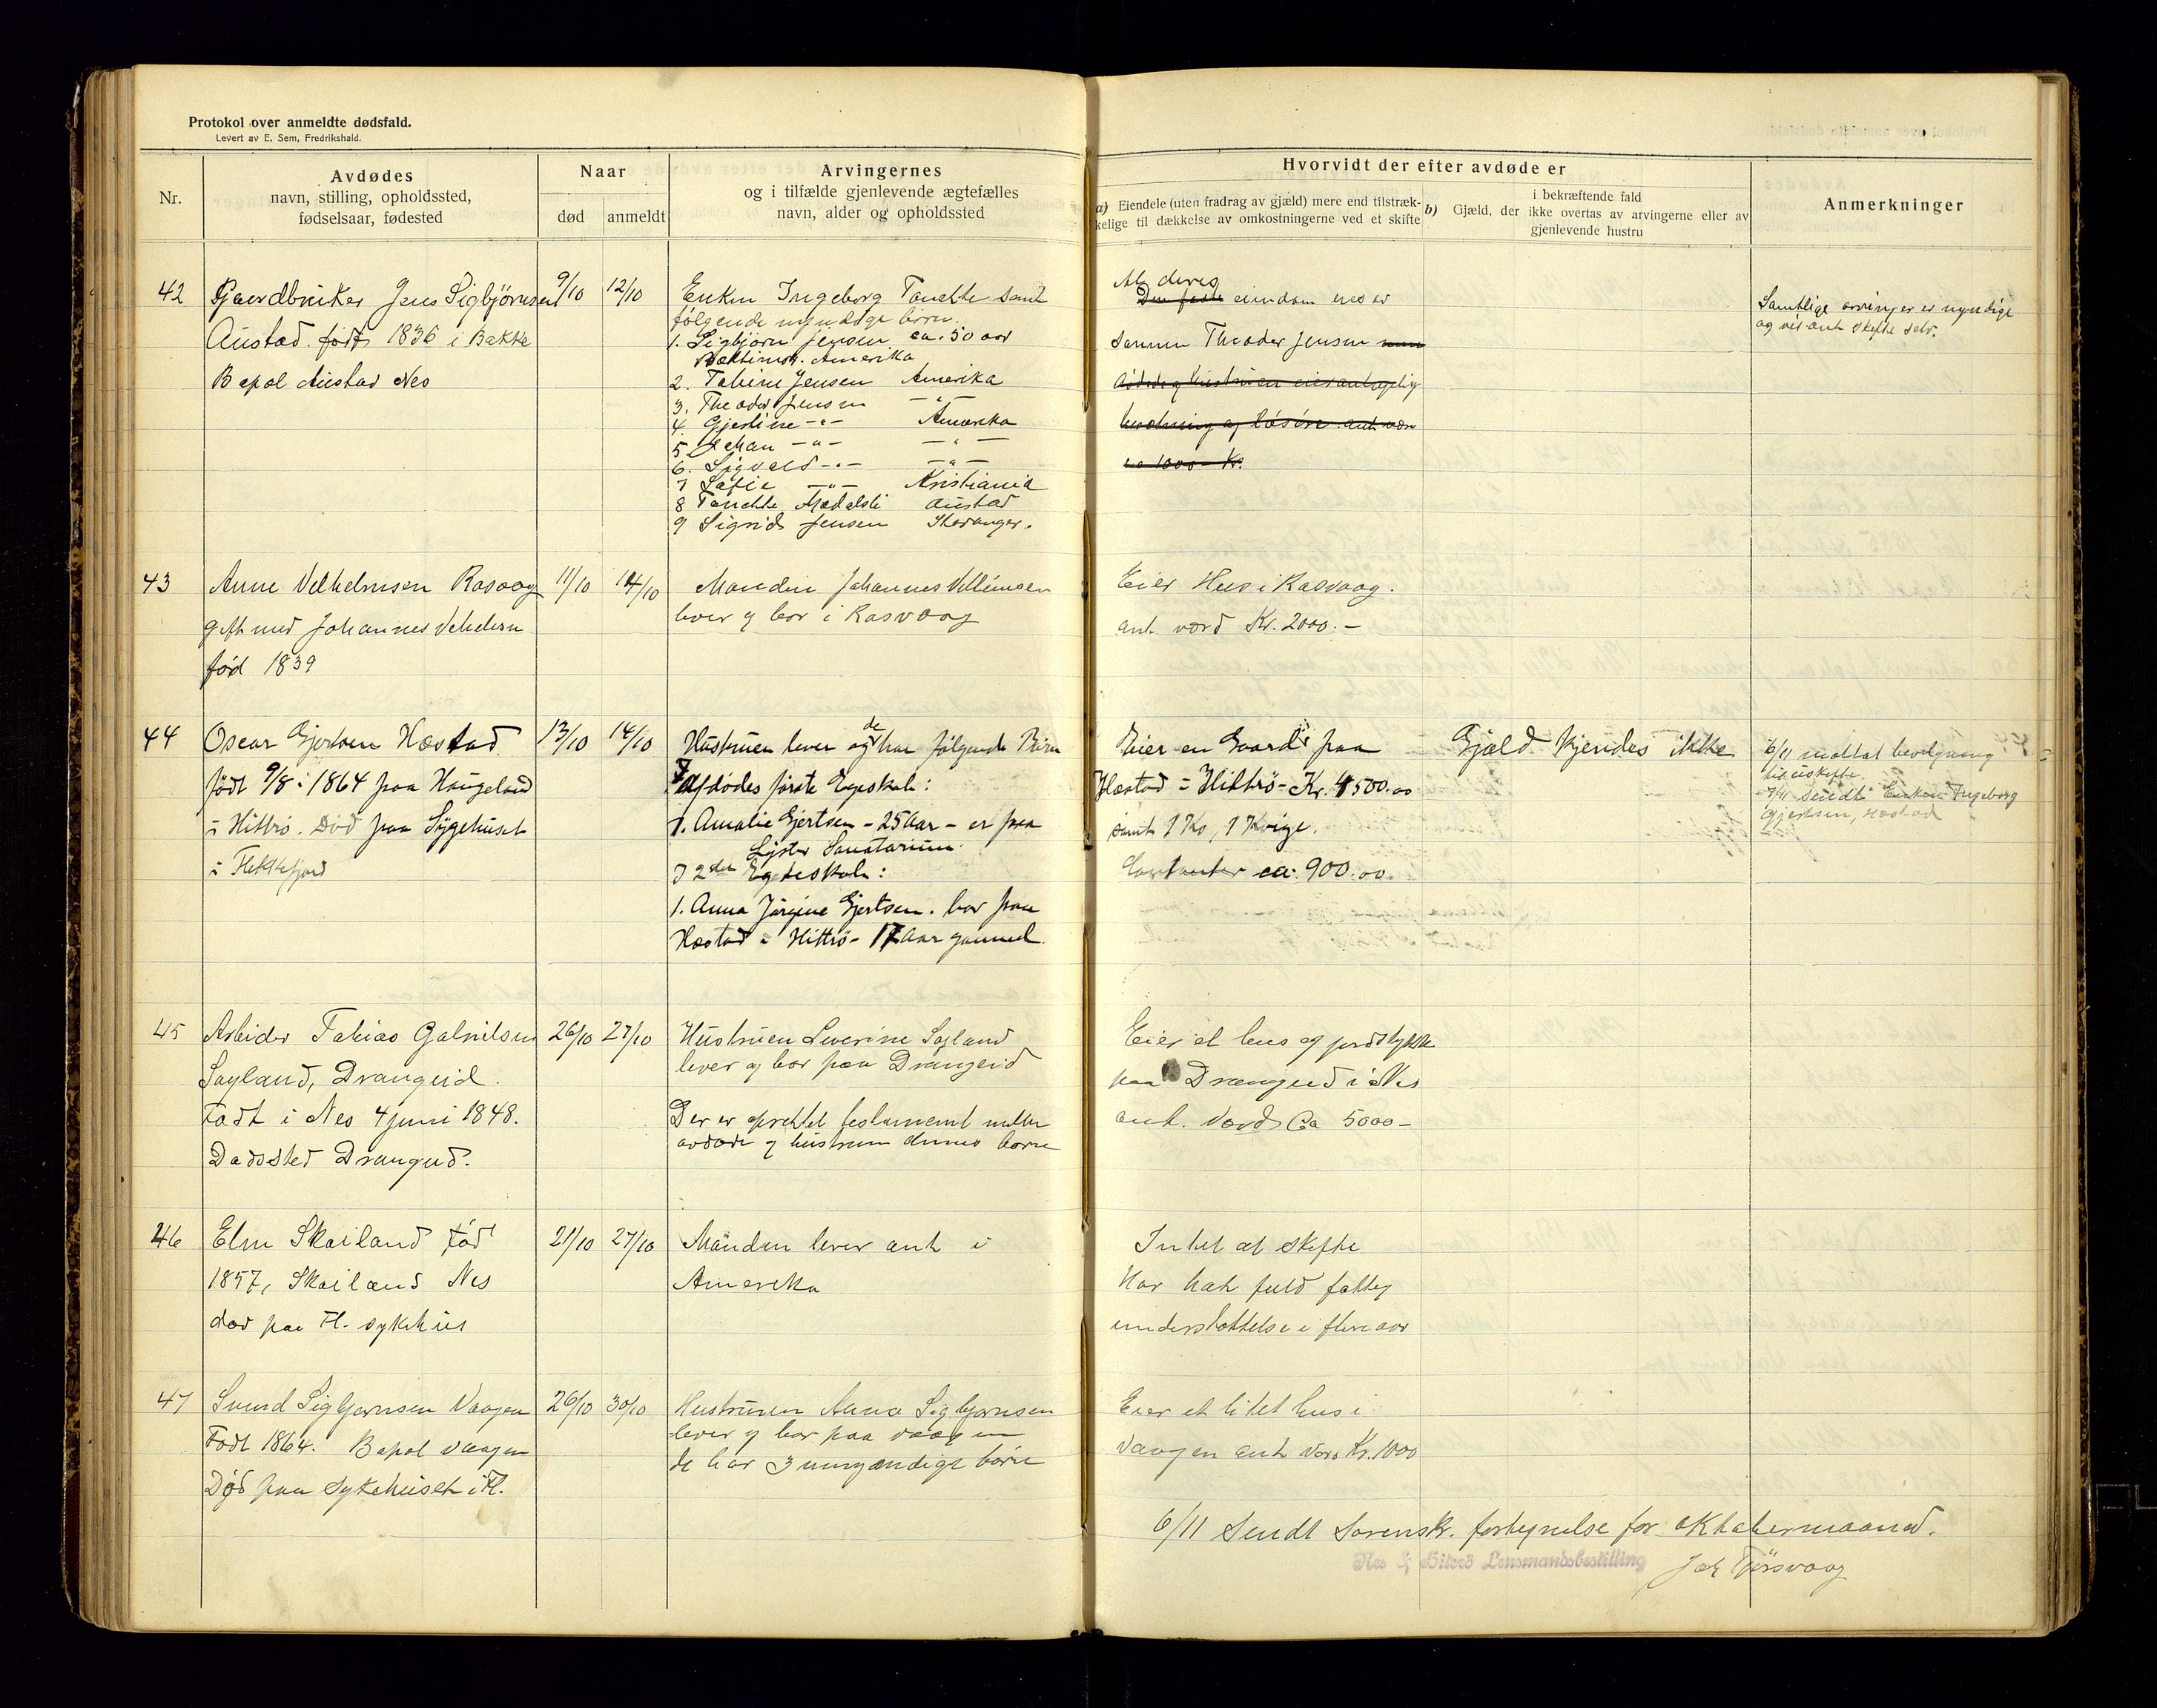 Protokol over anmeldte dødsfald.
Levert av E. Sem, Fredrikshald.
Nr.
Avdødes
navn, stilling, opholdssted,
fødselsaar, fødested
Naar
død
anmeldt
Arvingernes
og i tilfælde gjenlevende ægtefælles
navn, alder og opholdssted
Hvorvidt der efter avdøde er
a) Eiendele (uten fradrag av gjæld) mere end tilstræk-
kelige til dækkelse av omkostningerne ved et skifte
b) Gjæld, der
i bekræftende fald
ikke overtas av arvingerne eller av
gjenlevende hustru
Anmerkninger
42
Gaardbruker Jens Sigbjørnsen
Austad. født 1836 i Bakke
Bopæl Austad Nes
9/10
12/10
Enken Ingeborg Tonette samt
følgende myndige børn.
1. Sigbjørn Jensen ca. 50 aar
Baltimor. Amerika
2. Tobine Jensen Amerika
3. Theodor Jensen — " —
4. Gjertine - " - Amerika
5 Johan — " — — " —
6. Sigvald - " - — " —
7 Sofie — " — Kristiania
8 Tonette Mødalsli Austad
9 Sigrid Jensen Stavanger.
Al deres
Den faste eiendom nes er
sønnen Theodor Jensen
ca 1000 - Kr.
Samtlige arvinger er myndige
og vil ant skifte selv.
43
Anne Velhelmsen Rasvog
gift med Johannes Vehelm
fød 1839
11/10
14/10
Manden Johannes Villumsen
lever og bor i Rasvaag
Eier Hus i Rasvaag.
ant. værd Kr. 2000.-
44
Oscar Gjertsen Hæstad
født 9/8. 1864 paa Haugeland
i Hittrø. Død paa Sygehuset
i Flekkefjord
13/10
14/10
Hustruen lever og de har følgende Børn
I Afdødes første Egteskab:
1. Amalie Gjertsen - 25 Aar - er paa
Lyster Sanatorium.
I 2den Egteskab:
1. Anna Jørgine Gjertsen. bor paa
Hæstad i Hittrø - 17 Aar gammel.
Eier en Gaard paa
Hæstad i Hittrø - Kr. 4500.00
samt 1 Ko, 1 Kvige.
Contanter ca. 900.00
Gjæld kjendes ikke
6/11 mottat bevilgning
til uskifte.
7/11 sendt Enken Ingeborg
Gjertsen, Hæstad
45
Arbeider Tobias Gabrilsen
Søyland, Drangeid.
Født i Nes 4 juni 1848.
Dødssted Drangeid.
26/10
27/10
Hustruen Severine Søyland
lever og bor paa Drangeid
Der er oprettet testament mellem
avdøde og hustruen dennes børn
Eier et hus og jordstykke
paa Drangeid i Nes
ant. Værd Ca 5000 -
46
Elen Skailand fød
1857, Skailand Nes
død paa Fl. sykehus
21/10
27/10
Manden lever ant i
Amerika
Intet at skifte
Har hat fuld fattig
understøttelse i flere aar
47
Svend Sigbjørnsen Vaagen
Født 1864. Bopæl Vaagen
Død paa Sykehuset i Fl.
26/10
30/10
Hustruen Anna Sigbjørnsen
lever og bor paa Vaagen
de har 3 umyndige børn
Eier et litet hus i
Vaagen ant Værd Kr. 1000
6/11 Sendt Sorenskr. fortegnelse for oktobermaaned.
Nes & Hiterø Lensmandsbestilling